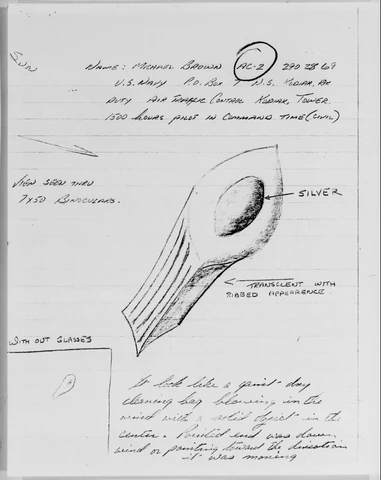 SUN
NAME: MICHAEL BROWN AC-2 290 28 69
U.S. NAVY P.O. BOX 7 N.S. KODIAK, AK
DUTY AIR TRAFFIC CONTROL KODIAK, TOWER.
1500 HOURS PILOT IN COMMAND TIME (CIVIL)
VIEW SEEN THRU
7X50 BINOCULARS.
SILVER
TRANSCLENT WITH
RIBBED APPEARENCE
WITH OUT GLASSES
It look like a giant dry
cleaning bag blowing in the
wind with a solid object in the
center. Pointed end was down
wind or pointing toward the direction
it was moving